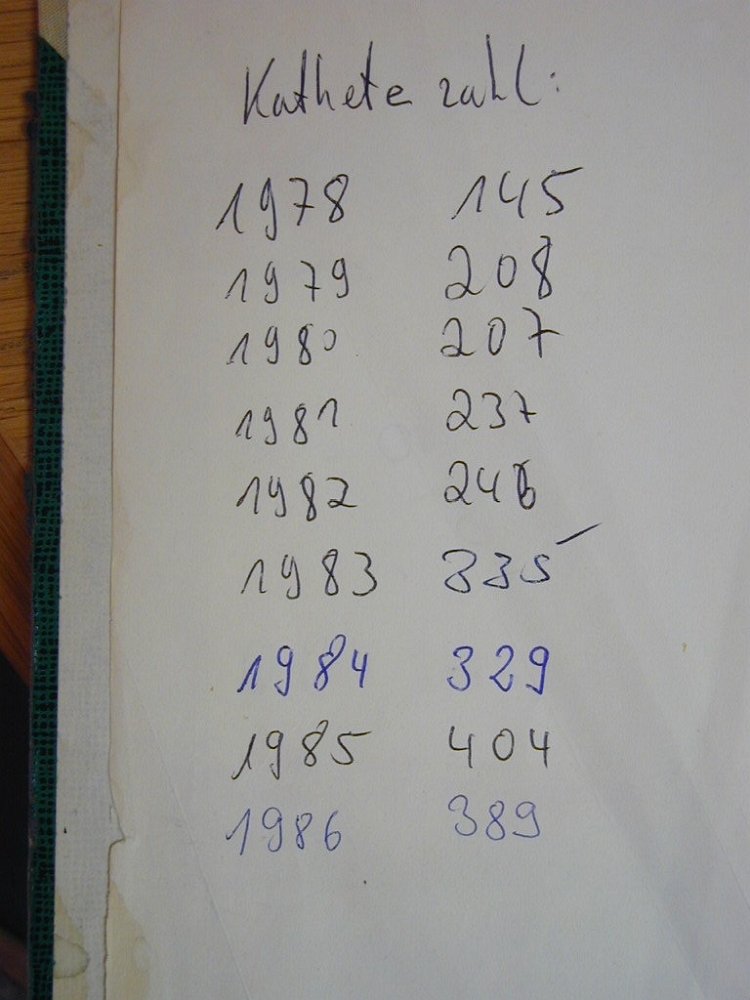 Kathete zahl:
1978 145
1979 208
1980 207
1981 237
1982 246
1983 335
1984 329
1985 404
1986 389